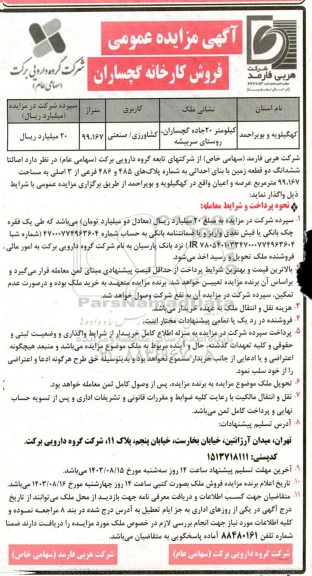 آگهی مزایده عمومی
فروش کارخانه گچساران
شرکت
هربی فارمد
شرکت گروه دارویی برکت
(سهامی عام)
نام استان
نشانی ملک
کاربری
متراژ
سپرده شرکت در مزایده (میلیارد ریال)
کهگیلویه و بویراحمد
کیلومتر ۲۰جاده گچساران، روستای سربیشه
کشاورزی/ صنعتی
۹۹.۱۶۷
۲۰ میلیارد ریال
شرکت هربی فارمد (سهامی خاص) از شرکتهای تابعه گروه دارویی برکت (سهامی عام) در نظر دارد اصالتا
ششدانگ دو قطعه زمین با بنای احداثی به شماره پلاک‌های ۴۸۵ و ۴۸۶ فرعی از ۳ اصلی به مساحت
۹۹.۱۶۷ مترمربع عرصه و اعیان واقع در کهگیلویه و بویراحمد از طریق برگزاری مزایده عمومی با شرایط
ذیل واگذار نماید:
نحوه پرداخت و شرایط معامله:
۱. سپرده شرکت در مزایده به مبلغ ۲۰ میلیارد ریال (معادل دو میلیارد تومان) می‌باشد که طی یک فقره
چک بانکی یا فیش نقدی واریز و یا ضمانتنامه بانکی به حساب شماره ۴۷۰۰۰۷۷۴۹۶۳۶۰۴ (شماره شبا
) نزد بانک پارسیان به نام شرکت گروه دارویی برکت به امور مالی
فروشنده ملک تحویل و رسید اخذ می‌شود.
۲. بالاترین قیمت و بهترین شرایط پرداخت از حداقل قیمت پیشنهادی مبنای ثمن معامله قرار می‌گیرد و
براساس آن برنده مزایده تعیین می‌شود. برنده مزایده متعهد به خرید ملک بوده و درصورت عدم
تمکین، سپرده شرکت در مزایده آن به نفع شرکت وصول خواهد شد.
۳. هزینه نقل و انتقال ملک به عهده خریدار می‌باشد.
۴. فروشنده در رد یک یا تمامی پیشنهادات مختار است.
۵. پرداخت سپرده شرکت در مزایده به منزله اطلاع کامل خریدار از شرایط واگذاری و وضعیت ثبتی و
حقوقی و کلیه تعهدات گذشته، حال و آینده مربوط به ملک موضوع مزایده می‌باشد و منبعد هیچگونه
اعتراضی و یا ادعایی از جانب خریدار مسموع نخواهد بود و بدینوسیله حق طرح هرگونه ادعا و اعتراضی
را از خود سلب نمود.
۶. تحویل ملک موضوع مزایده به برنده مزایده، پس از وصول کامل ثمن معامله خواهد بود.
۷. نقل و انتقال مالکیت با رعایت کلیه ضوابط و مقررات قانونی و تشریفات اداری و پس از تسویه حساب
نهایی و پرداخت کامل ثمن می‌باشد.
۸. آدرس تسلیم پیشنهادات:
تهران، میدان آرژانتین، خیابان بخارست، خیابان پنجم، پلاک ۱۱، شرکت گروه دارویی برکت.
کدپستی: ۱۵۱۳۷۱۸۱۱۱
۹. آخرین مهلت تسلیم پیشنهاد ساعت ۱۴ روز سه‌شنبه مورخ ۱۴۰۳/۰۸/۱۵ می‌باشد.
۱۰. تاریخ اعلام برنده مزایده فروش ملک بصورت کتبی ساعت ۱۴ روز چهارشنبه مورخ ۱۴۰۳/۰۸/۱۶ می‌باشد.
۱۱. متقاضیان جهت کسب اطلاعات و دریافت معرفی نامه جهت بازدید از محل ملک می‌توانند از تاریخ
درج آگهی در یکی از روزهای اداری به جز ایام تعطیل به آدرس درج شده در بند ۸ مراجعه نموده و
کلیه اطلاعات مورد نیاز جهت انجام بررسی لازم در خصوص ملک مورد مزایده را دریافت دارند ضمنا
شماره تلفن ۸۸۴۸۰۱۶۱ آماده پاسخگویی به متقاضیان می‌باشد.
شرکت گروه دارویی برکت (سهامی عام)
شرکت هربی فارمد (سهامی خاص)